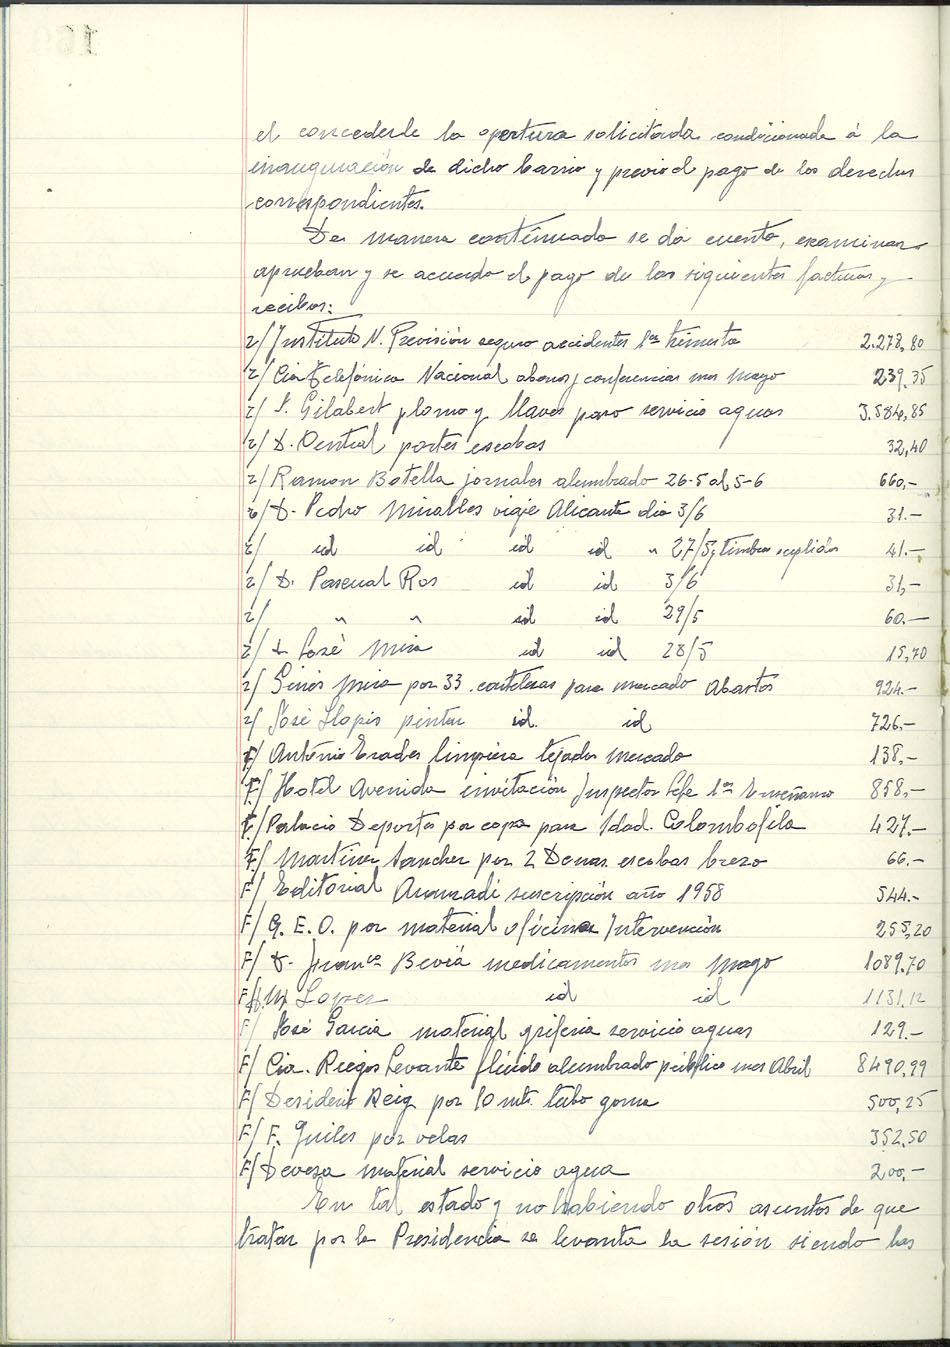 el concederle la apertura solicitada condicionada á la
inauguración de dicho barrio y previo el pago de los derechos
correspondientes.
De manera continuada se dá cuenta, examinan
aprueban y se acuerda el pago de las siguientes facturas y
recibos:
r/ Instituto N. Previsión seguro accidentes 1er trimestre 2.278,80
r/ Cia Telefónica Nacional abonos y conferencias mes mayo 239,35
r/ S. Gilabert plomo y llaves para servicio aguas 3.584,85
r/ D. Central portes escobas 32,40
r/ Ramon Botella jornales alumbrado 26-5 al 5-6 660,-
r/ D. Pedro Miralles viaje Alicante dia 3/6 31.-
r/ id id id id " 27/5 y timbres suplidos 41.-
r/ D. Pascual Ros id id 3/6 31,-
r/ " " id id 29/5 60.-
r/ D. José Mira id id 28/5 15,70
r/ Ginés Mira por 33 carteleras para mercado Abastos 924.-
r/ José Llopis pintar id. id 726.-
F/ António Erades limpieza tejados mercado 138,-
F/ Hotel Avenida invitación Inspector Jefe 1ª Enseñanza 858,-
F/ Palacio Deportes por copa para Sdad. Colombófila 427.-
F/ Martinez Sanchez por 2 Docenas escobas brezo 66.-
F/ Editorial Aranzadi suscripción año 1958 544.-
F/ G. E. O. por material oficina Intervención 255,20
F/ D. Franco Beviá medicamentos mes mayo 1089.70
F/ Lopez id id 1131,12
F/ José Garcia material griferia servicio aguas 129.-
F/ Cia. Riegos Levante flúido alumbrado público mes Abril 8490,99
F/ Desiderio Reig por 10 mts. tubo goma 500,25
F/ F. Quiles por velas 352,50
F/ Devesa material servicio agua 200,-
En tal estado y no habiendo otros asuntos de que
tratar por la Presidencia se levanta la sesión siendo las